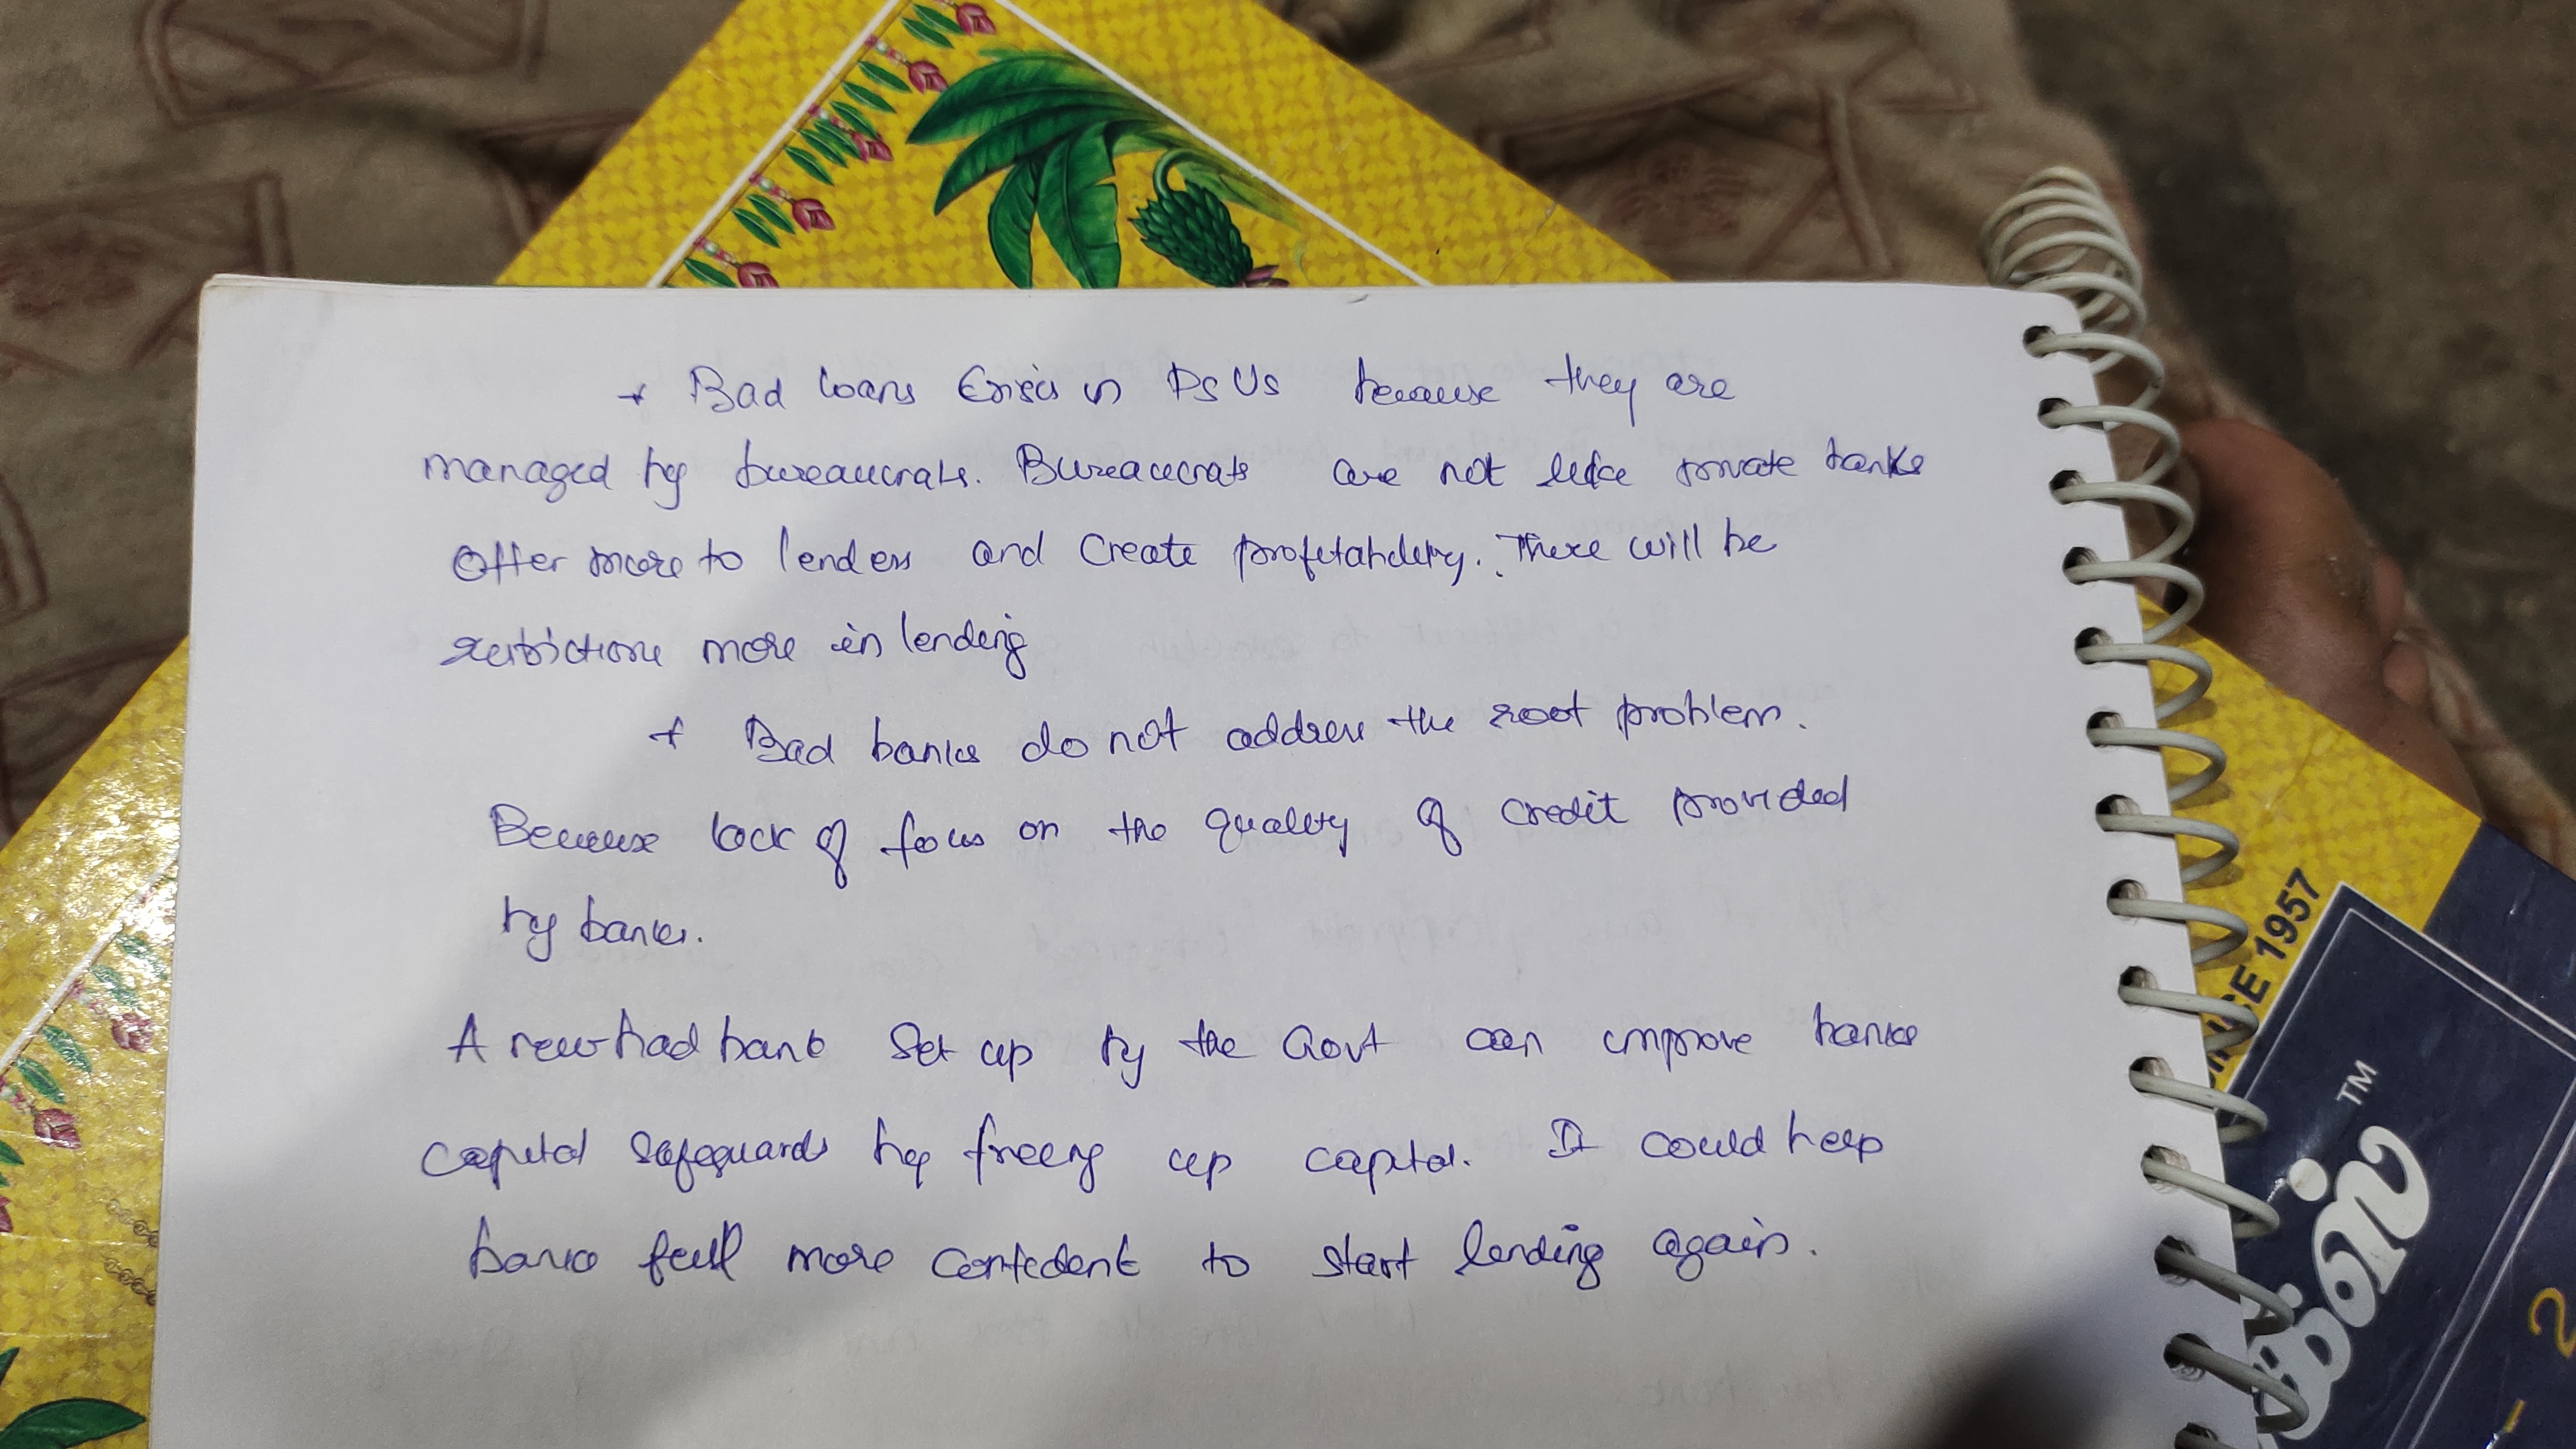 * Bad loans Crisis in PSUs because they are
managed by bureaucrats. Bureaucrats are not like private banks
Offer more to lenders and create profitability. There will be
restrictions more in lending
* Bad banks do not address the root problem.
Because lack of focus on the quality of credit provided
by banks.
A new bad bank set up by the Govt can improve banks
capital safeguards by freeing up capital. It could help
banks feel more confident to start lending again.
1957
TM
2